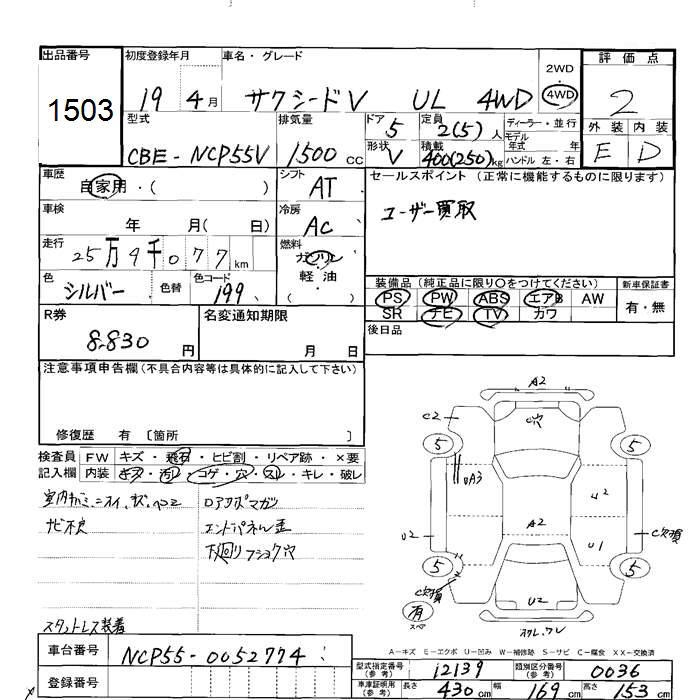 出品番号
1503
初度登録年月
19 4 月
車名・グレード
サクシードV UL 4WD
2WD
・
4WD
評価点
2
外装 内装
E D
型式
CBE-NCP55V
排気量
1500 cc
ドア 5
形状 V
定員 2(5) 人
積載 400(250) kg
ディーラー・並行
モデル
年式 年
ハンドル 左・右
車歴
自家用・( )
シフト
AT
セールスポイント (正常に機能するものに限ります)
ユーザー買取
車検
年 月( 日)
冷房
AC
走行
25万9千077 km
燃料
ガソリン
・
軽油
( )
色
シルバー
色替
色コード
199
装備品(純正品に限り○をつけてください)
PS PW ABS エアB AW
SR ナビ TV カワ
新車保証書
有・無
後日品
R券
8.830 円
名変通知期限
月 日
注意事項申告欄(不具合内容等は具体的に記入して下さい)
修復歴 有 〔箇所
検査員
記入欄
FW キズ・飛石・ヒビ割・リペア跡・×要
内装 キズ・汚レ・コゲ・穴・スレ・キレ・破レ
ナビ不良
下廻りフショク穴
スタットレス装着
車台番号
NCP55-0052774
登録番号
A2
C2
穴
5
5
A3
U2
A2
U2
U1
C欠損
5
5
C欠損
有
スペア
U2
A-キズ E-エクボ U-凹み W-補修跡 S-サビ C-腐食 XX-交換済
型式指定番号
(参考)
12139
類別区分番号
(参考)
0036
車庫証明用
(参考)
長さ 430 cm
幅 169 cm
高さ 153 cm